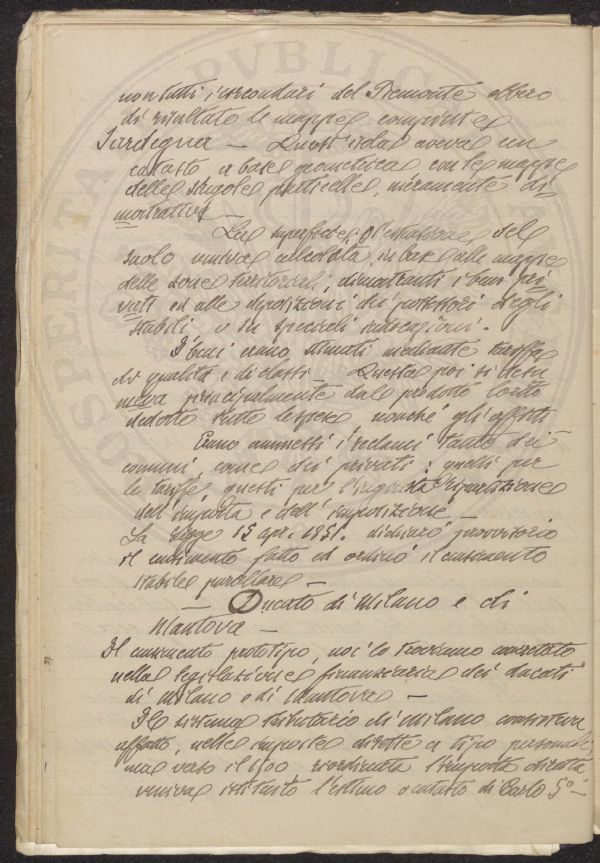 non tutti i circondari del Piemonte ebbero
di risultato le mappe compiute
Sardegna — Quest'isola aveva un
catasto a base geometrica con le mappe
delle singole particelle, meramente di
mostrative —
La superficie, l'estensione del
suolo veniva calcolata, in base alle mappe
delle zone territoriali, dimostranti i beni pri
vati ed alle deposizioni dei possessori degli
stabili, o su speciali
I beni erano stimati mediante tariffe
di qualità e di classi — Questa poi si desu
meva principalmente dal prodotto lordo
dedotte tutte le spese nonché gli affitti
Erano ammessi i reclami tanto dei
comuni, come dei privati: quelli per
le tariffe questi per l'ingiusta ripartizione
dell'imposta e dell'imposizione —
La legge 15 apr. 1851. dichiarò provvisorio
il censimento fatto ed ordinò il censimento
stabile parcellare —
— Ducato di Milano e di
Mantova —
Il censimento prototipo, noi lo troviamo concretato
nella legislazione finanziaria dei ducati
di Milano e di Mantova —
Il sistema tributario di Milano consisteva
affatto, nelle imposte dirette a tipo personale,
ma verso il 1500 riordinata l'imposta diretta
veniva istituito l'estimo o catasto di Carlo 5° —
PVBLICA
PERVTA